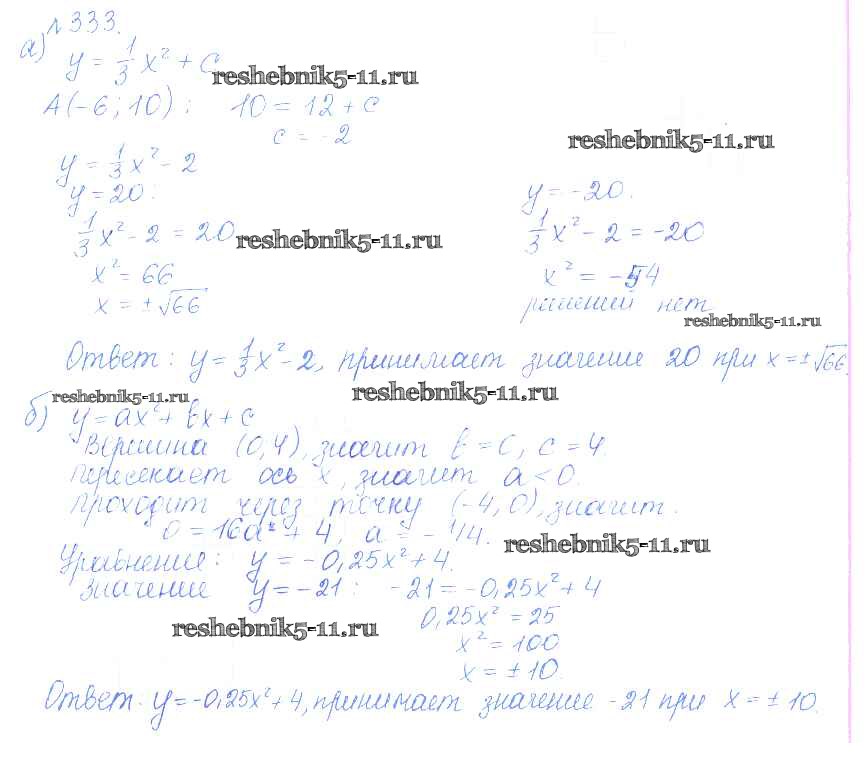 №333.
а)
y = 1/3 x² + C
reshebnik5-11.ru
A(-6; 10): 10 = 12 + c
c = -2
reshebnik5-11.ru
y = 1/3 x² - 2
y = 20: y = -20.
1/3 x² - 2 = 20 1/3 x² - 2 = -20
reshebnik5-11.ru
x² = 66 x² = -54
x = ±√66 решений нет
reshebnik5-11.ru
Ответ: y = 1/3 x² - 2, принимает значение 20 при x = ±√66.
reshebnik5-11.ru reshebnik5-11.ru
б) y = ax² + bx + c
Вершина (0,4), значит b = C, c = 4.
Пересекает ось x, значит a < 0.
Проходит через точку (-4, 0), значит.
0 = 16a + 4, a = - 1/4.
reshebnik5-11.ru
Уравнение: y = -0,25x² + 4.
Значение y = -21: -21 = -0,25x² + 4
0,25x² = 25
reshebnik5-11.ru
x² = 100
x = ± 10.
Ответ. y = -0,25x² + 4, принимает значение -21 при x = ± 10.